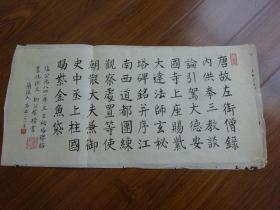 唐故左街僧錄
內供奉三教談
論引駕大德安
國寺上座賜紫
大達法師玄秘
塔碑銘并序江
南西道都團練
觀察處置等使
朝散大夫兼御
史中丞上柱國
賜紫金魚袋
柳公權